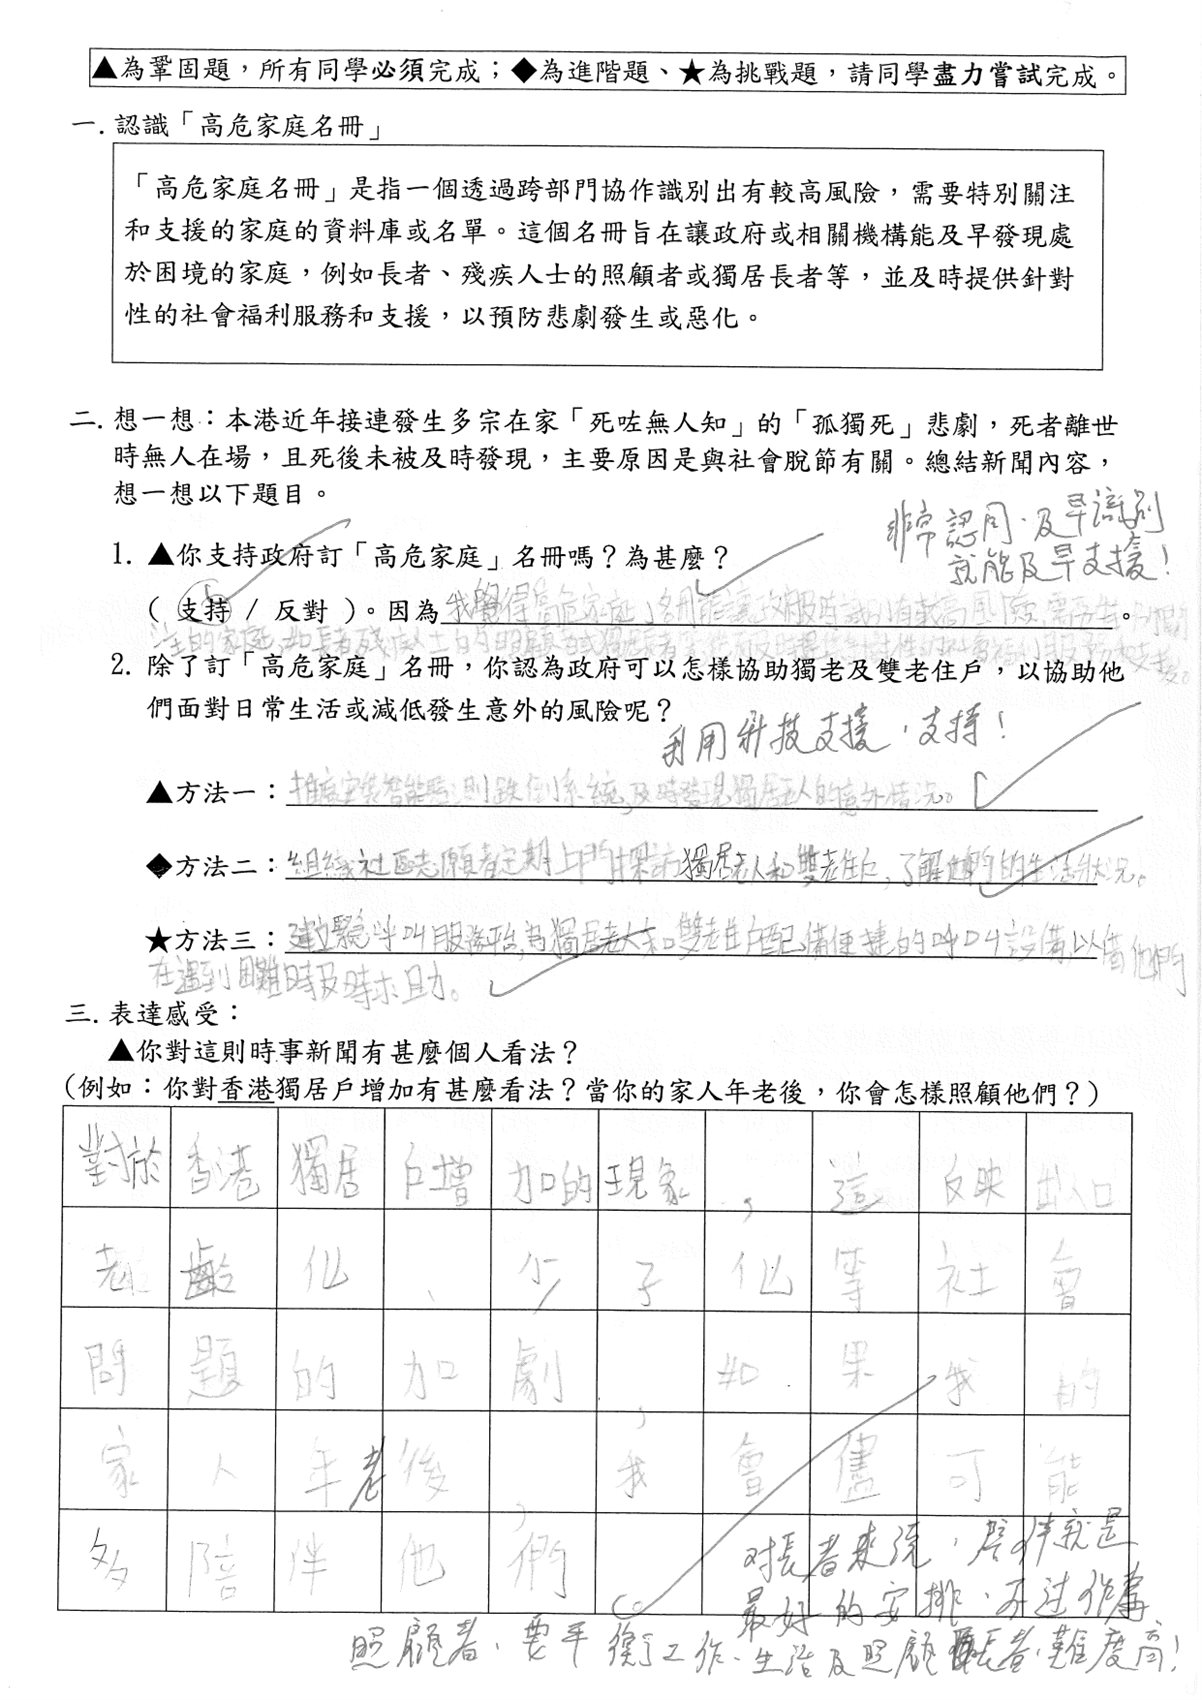 ▲為鞏固題，所有同學必須完成；◆為進階題、★為挑戰題，請同學盡力嘗試完成。
一. 認識「高危家庭名冊」
「高危家庭名冊」是指一個透過跨部門協作識別出有較高風險，需要特別關注
和支援的家庭的資料庫或名單。這個名冊旨在讓政府或相關機構能及早發現處
於困境的家庭，例如長者、殘疾人士的照顧者或獨居長者等，並及時提供針對
性的社會福利服務和支援，以預防悲劇發生或惡化。
二. 想一想：本港近年接連發生多宗在家「死咗無人知」的「孤獨死」悲劇，死者離世
時無人在場，且死後未被及時發現，主要原因是與社會脫節有關。總結新聞內容，
想一想以下題目。
非常認同，及早識別
就能及早支援！
1. ▲你支持政府訂「高危家庭」名冊嗎？為甚麼？
( 支持 / 反對 )。因為我覺得「高危家庭」名冊能有較高風險需要特別關
注的家庭，如長者、殘疾人士的照顧者或獨居長者
2. 除了訂「高危家庭」名冊，你認為政府可以怎樣協助獨老及雙老住戶，以協助他
們面對日常生活或減低發生意外的風險呢？
利用科技支援，支持！
▲方法一：推廣安裝智能監測跌倒系統，及時發現獨居老人的意外情況。
◆方法二：組織社區志願者定期上門探訪獨居老人和雙老住戶，了解他們的生活狀況。
★方法三：建立緊急呼叫服務平台，為獨居老人和雙老住戶配備便捷的呼叫設備，以備他們
在遇到困難時及時求助。
三. 表達感受：
▲你對這則時事新聞有甚麼個人看法？
(例如：你對香港獨居戶增加有甚麼看法？當你的家人年老後，你會怎樣照顧他們？)
對於香港獨居戶增加的現象，這反映出人口
老齡化、少子化等社會
問題的加劇，如果我的
家人年老後，我會儘可能
多陪伴他們。
对長者來說，陪伴就是
最好的安排，不过作為
照顧者，要平衡工作、生活及照顧長者，難度高！